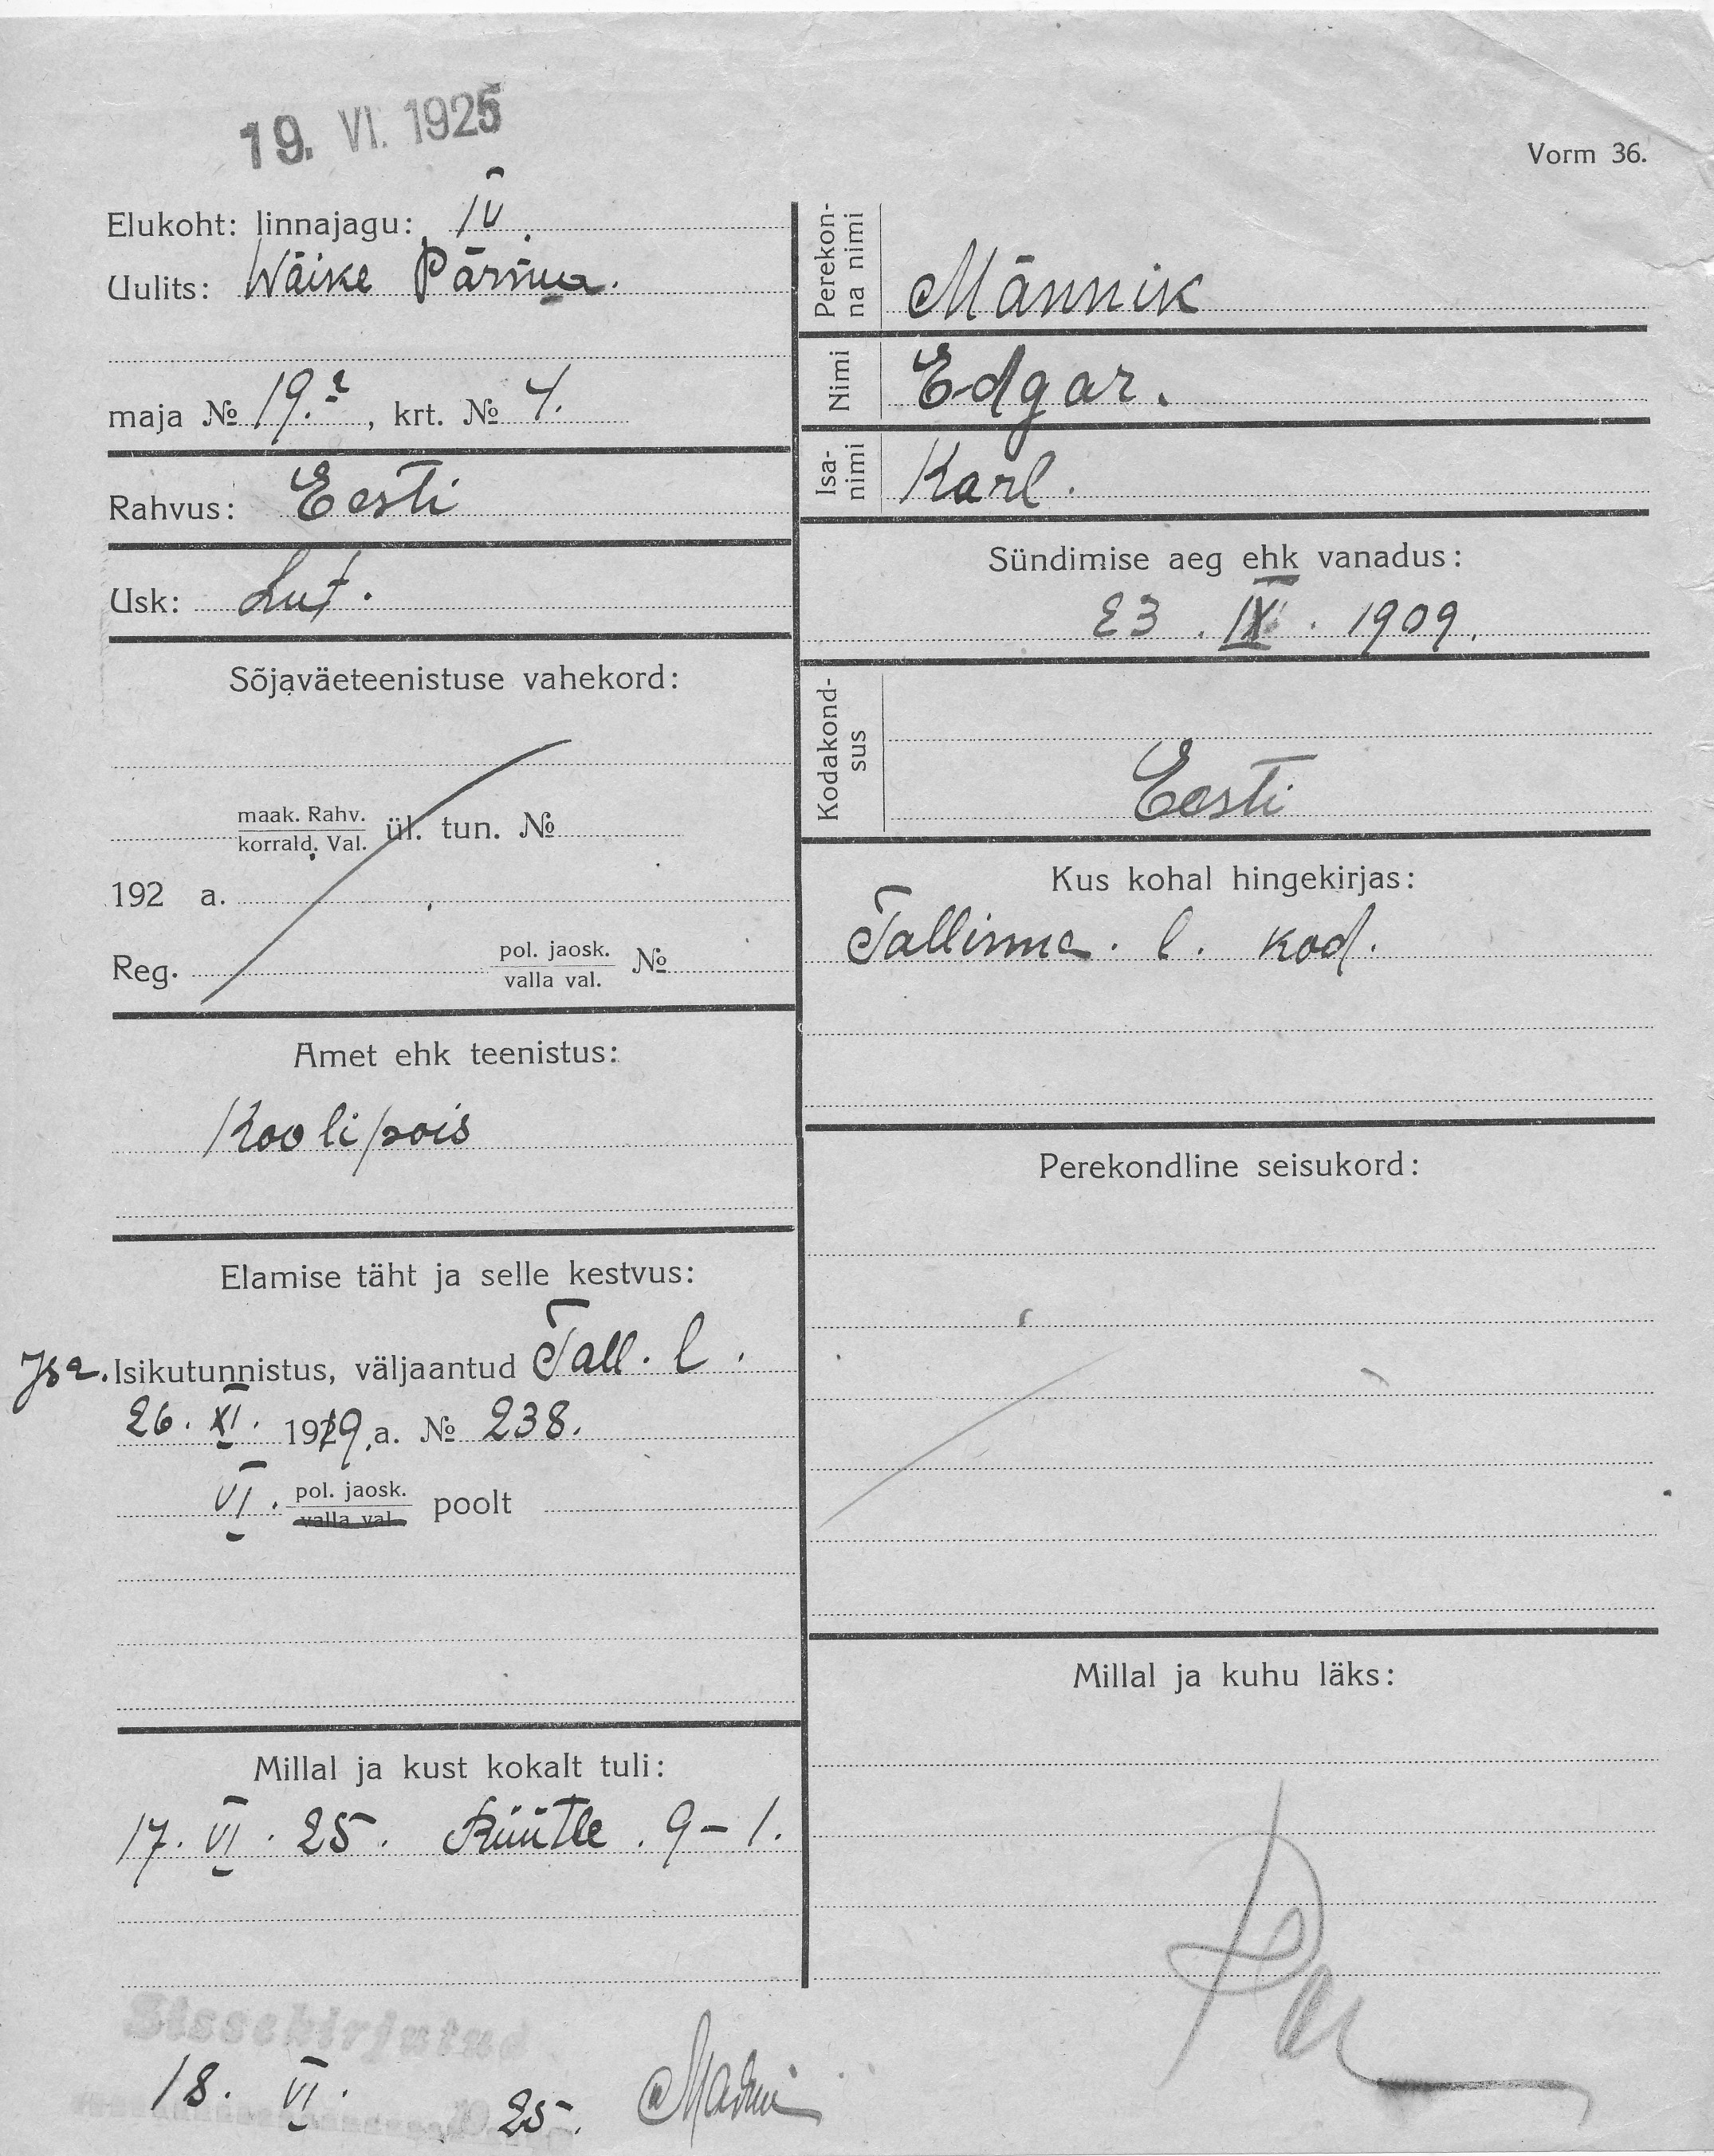 19. VI. 1925
Vorm 36.
Elukoht: linnajagu: IV.
Uulits: Wäike Pärnu.
maja № 19.ª, krt. № 4.
Rahvus: Eesti
Usk: Lut.
Sõjaväeteenistuse vahekord:
maak. Rahv.
korrald. Val. ül. tun. №
192 a.
Reg. pol. jaosk.
valla val. №
Amet ehk teenistus:
Koolipois
Elamise täht ja selle kestvus:
Isa. Isikutunnistus, väljaantud Tall. l.
26. XI. 1919. a. № 238.
VI. pol. jaosk.
valla val. poolt
Millal ja kust kokalt tuli:
17. VI. 25. Rüütle. 9-1.
Perekon-
na nimi
Männik
Nimi
Edgar.
Isa-
nimi
Karl.
Sündimise aeg ehk vanadus:
23. IX. 1909.
Kodakond-
sus
Eesti
Kus kohal hingekirjas:
Tallinna. l. kod.
Perekondline seisukord:
Millal ja kuhu läks:
Sissekirjutud
18. VI. 25.